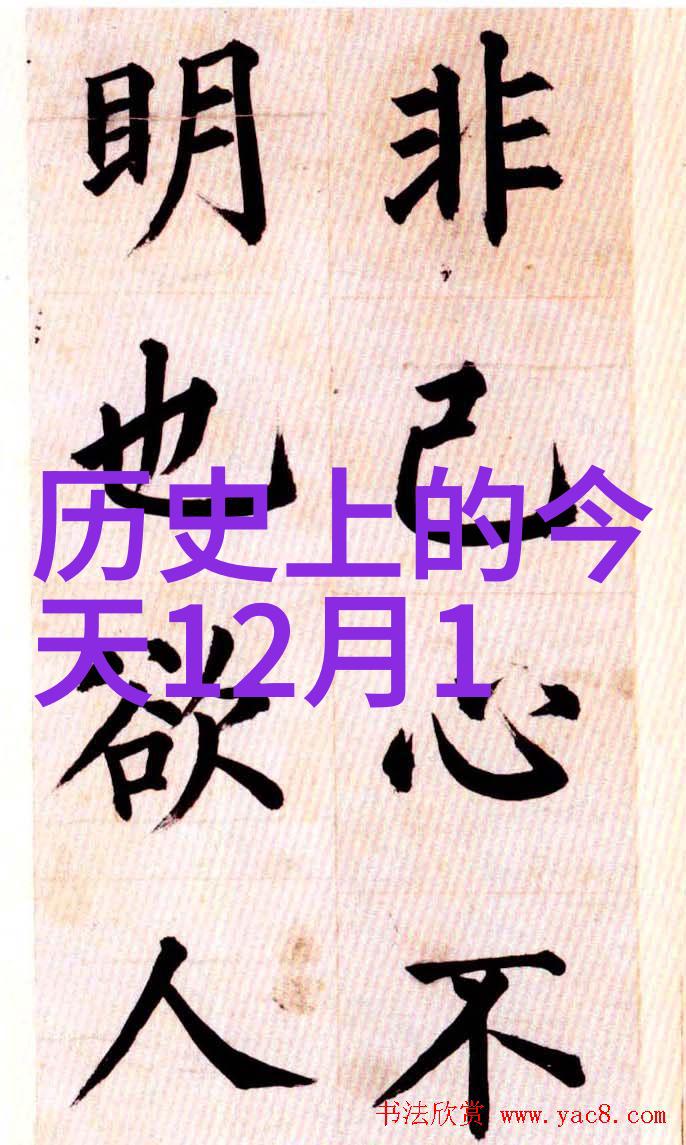 非己心不
明也欲人
历史上的今
天12月1
书法欣赏 www.yac8.com